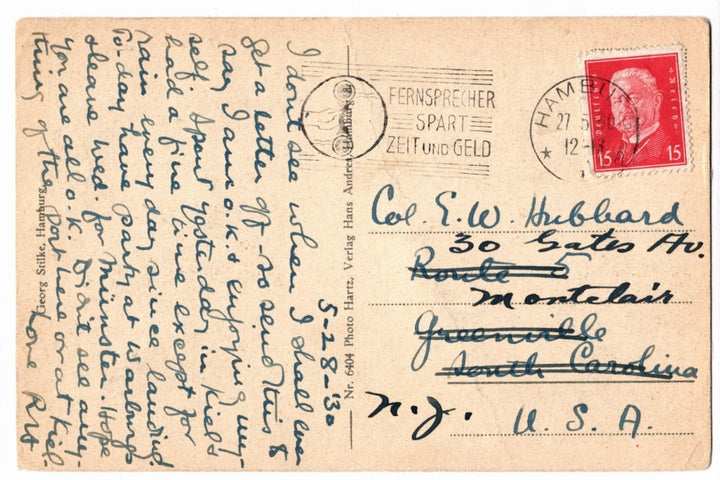 5-28-'30
I don't see when I shall ever
get a letter off - so send this to
say I am o.k. & enjoying my-
self. Spent yesterday in Kiel &
had a fine time except for
rain every day since landing.
To-day have party at Warburgs
& leave Wed. for Münster. Hope
you are all o.k. Didn't see any-
thing of the Port here or at Kiel.
Love
Georg Stilke, Hamburg
Nr. 6404 Photo Hartz, Verlag Hans Andres, Hamburg
FERNSPRECHER
SPART
ZEIT UND GELD
HAMBU
27.5.
12-
Deutsches Reich
15 15
Col. E. W. Hubbard
30 Gates Av.
Route 5
Montclair
Greenville
South Carolina
N.J. U. S. A.